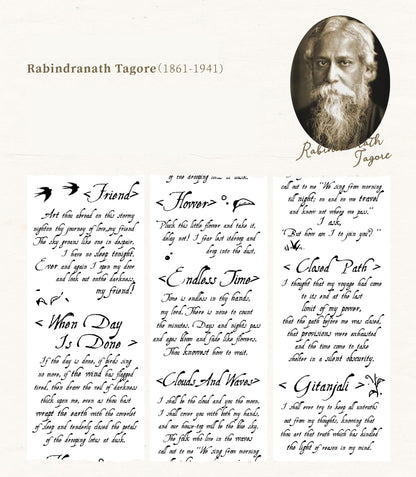 Rabindranath Tagore(1861-1941)
Rabindranath
Tagore
<Friend>
Art thou abroad on this stormy
nighton thy journey of love,my friend?
The sky groans like one in despair.
I have no sleep tonight.
Ever and again I open my door
and look out onthe darkness,
my friend!
< When Day
Is Done >
If the day is done, if birds sing
no more, if the wind has flagged
tired, then draw the veil of darkness
thick upon me, even as thou hast
wrapt the earth with the coverlet
of sleep and tenderly closed the petals
of the drooping lotus at dusk.
of the drooping lotus at dusk.
<Flower>
Pluck this little flower and take it,
delay not! I fear lest itdroop and
drop into the dust.
<Endless Time>
Time is endless in thy hands,
my lord. There is none to count
the minutes. Days and nights pass
and ages bloom and fade like flowers.
Thou knowest how to wait.
<Clouds And Waves>
I shall be the cloud and you the moon.
I shall cover you with both my hands,
and our house-top will be the blue sky.
The folk who live in the waves
call out to me "We sing from morning
call out to me "We sing from morning
till night; on and on we travel
and know not where we pass."
I ask,
"But how am I to join you?"
< Closed Path >
I thought that my voyage had come
to its end at the last
limit of my power,
that the path before me was closed,
that provisions were exhausted
and the time come to take
shelter in a silent obscurity.
< Gitanjali >
I shall ever try to keep all untruths
out from my thoughts, knowing that
thou art that truth which has kindled
the light of reason in my mind.